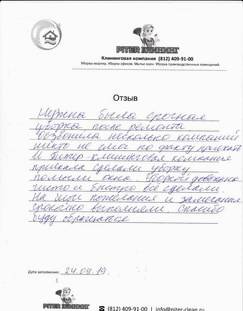 PITER КЛИНИНГ
Клининговая компания (812) 409-91-00
Уборка квартир. Уборка офисов. Мытье окон. Уборка производственных помещений.
Отзыв
Нужна была срочная
уборка после ремонта
Обзвонила несколько компаний
никто не смог по факту приехать
И Питер клининговая компания
приехала сделали уборку
помыли окна. Уборкой довольна
чисто и быстро все сделали
На мои пожелания и замечания
выполнили. Спасибо
буду обращаться
Дата заполнения: 24.09.19.
PITER КЛИНИНГ
(812) 409-91-00 | info@piter-clean.ru